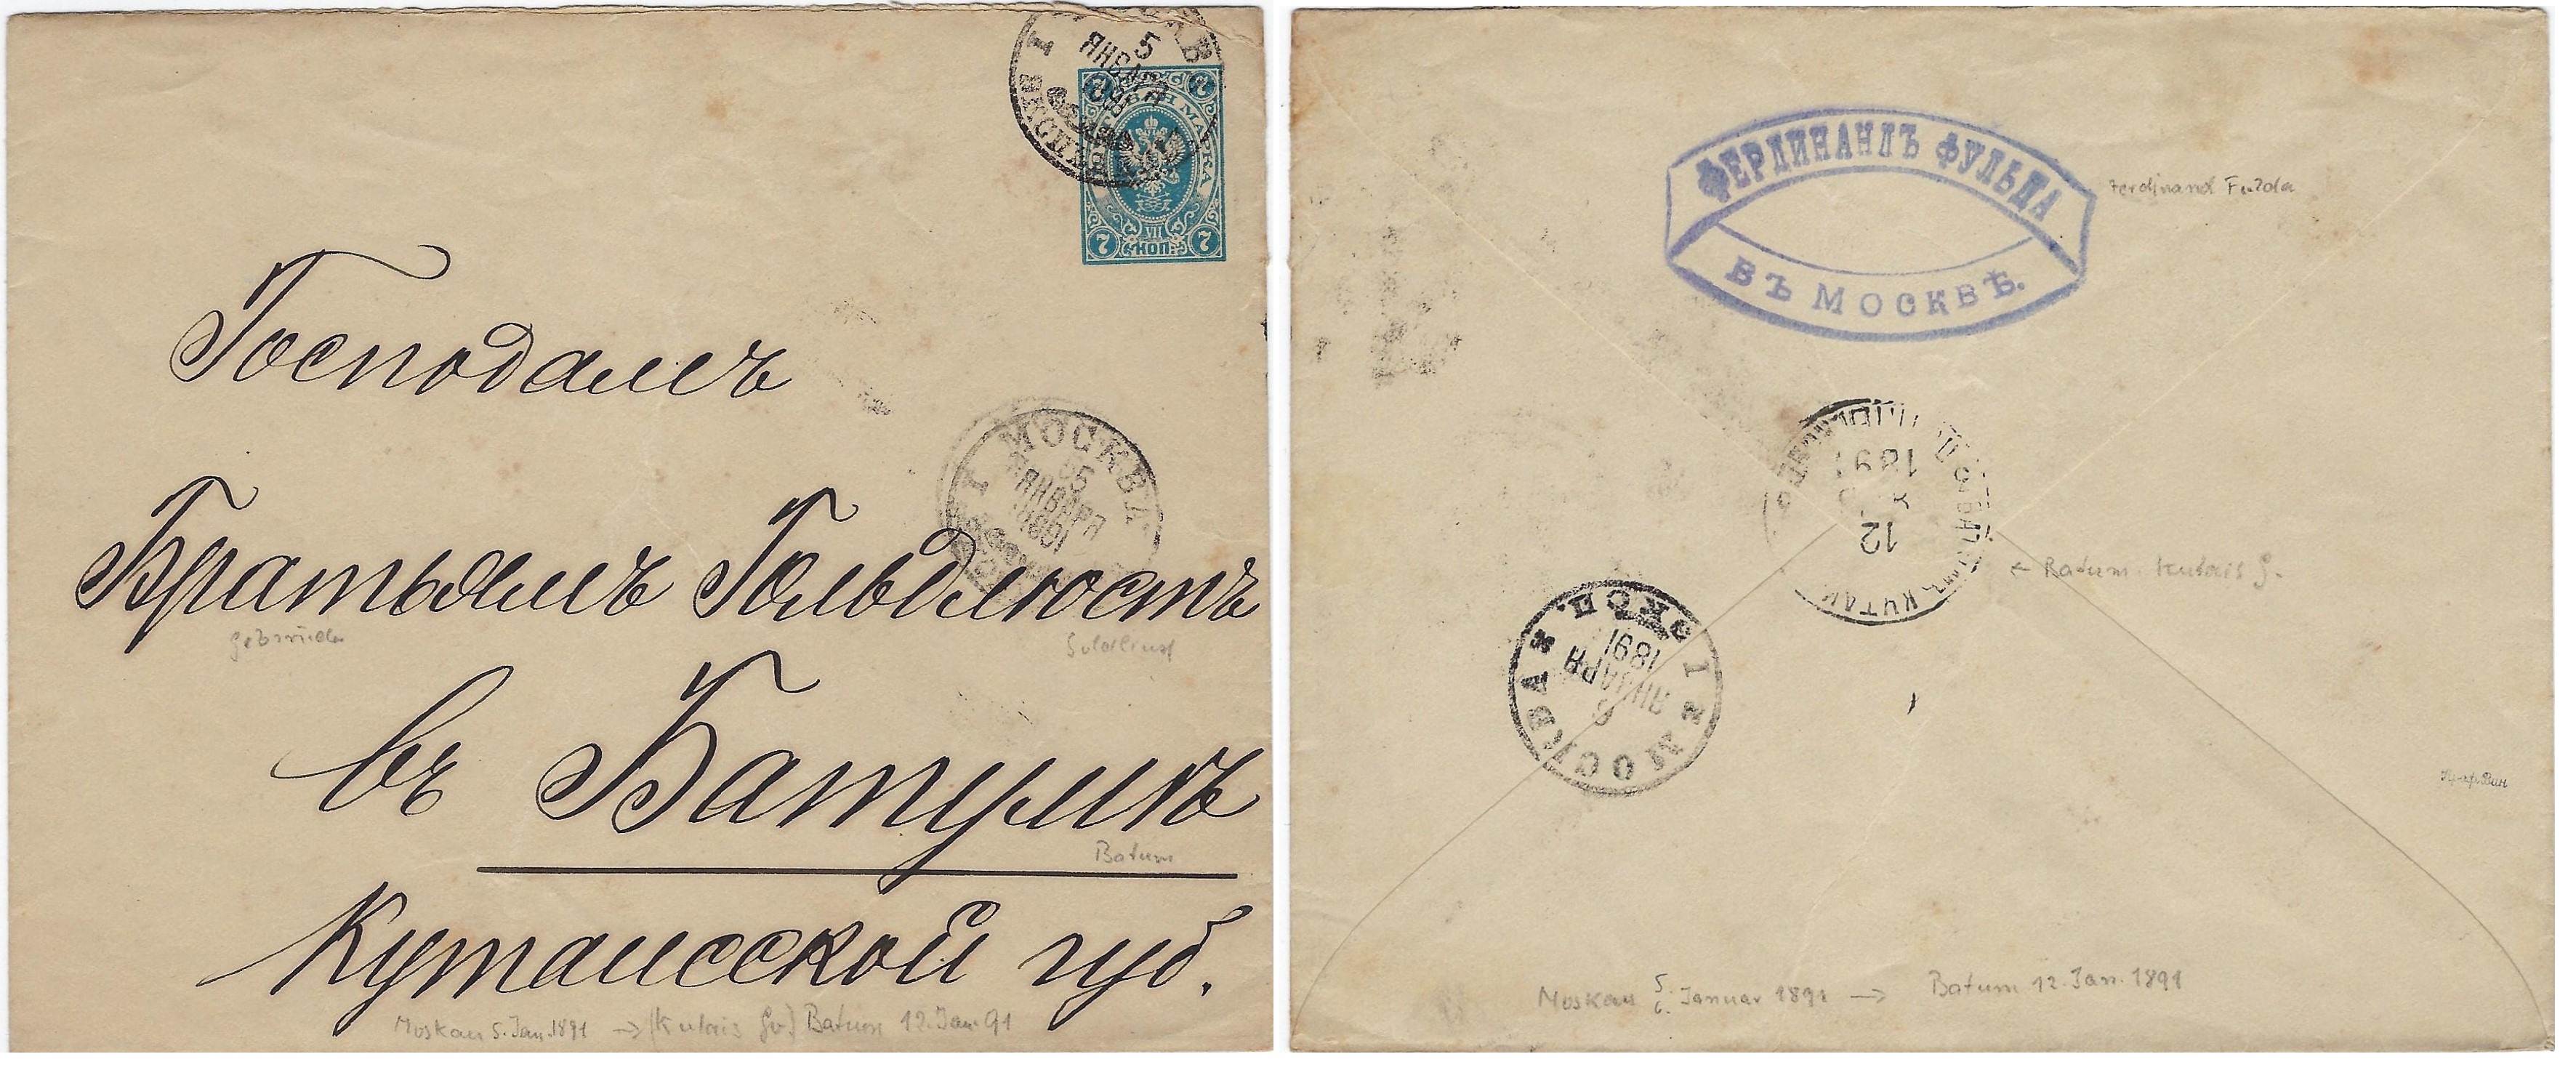 5
ЯНВАРЯ
ПОЧТОВАЯ МАРКА
7 7
VII
7 КОП. 7
Господамъ
I МОСКВА
5
ЯНВАРЯ
1891
Братьямъ Гольдлюстъ
Gebrüder Goldlust
въ Батумѣ
Batum
Кутаисской губ.
Moskau 5. Jan. 1891 → (Kutais Gv.) Batum 12. Jan 91
ФЕРДИНАНДЪ ФУЛЬДА
ВЪ МОСКВѢ.
Ferdinand Fulda
1891
12
КУТАИ
← Batum Kutais G.
МОСКВА
I ЭКСП.
6
ЯНВАРЯ
1891
Moskau 5./6. Januar 1891 → Batum 12. Jan. 1891